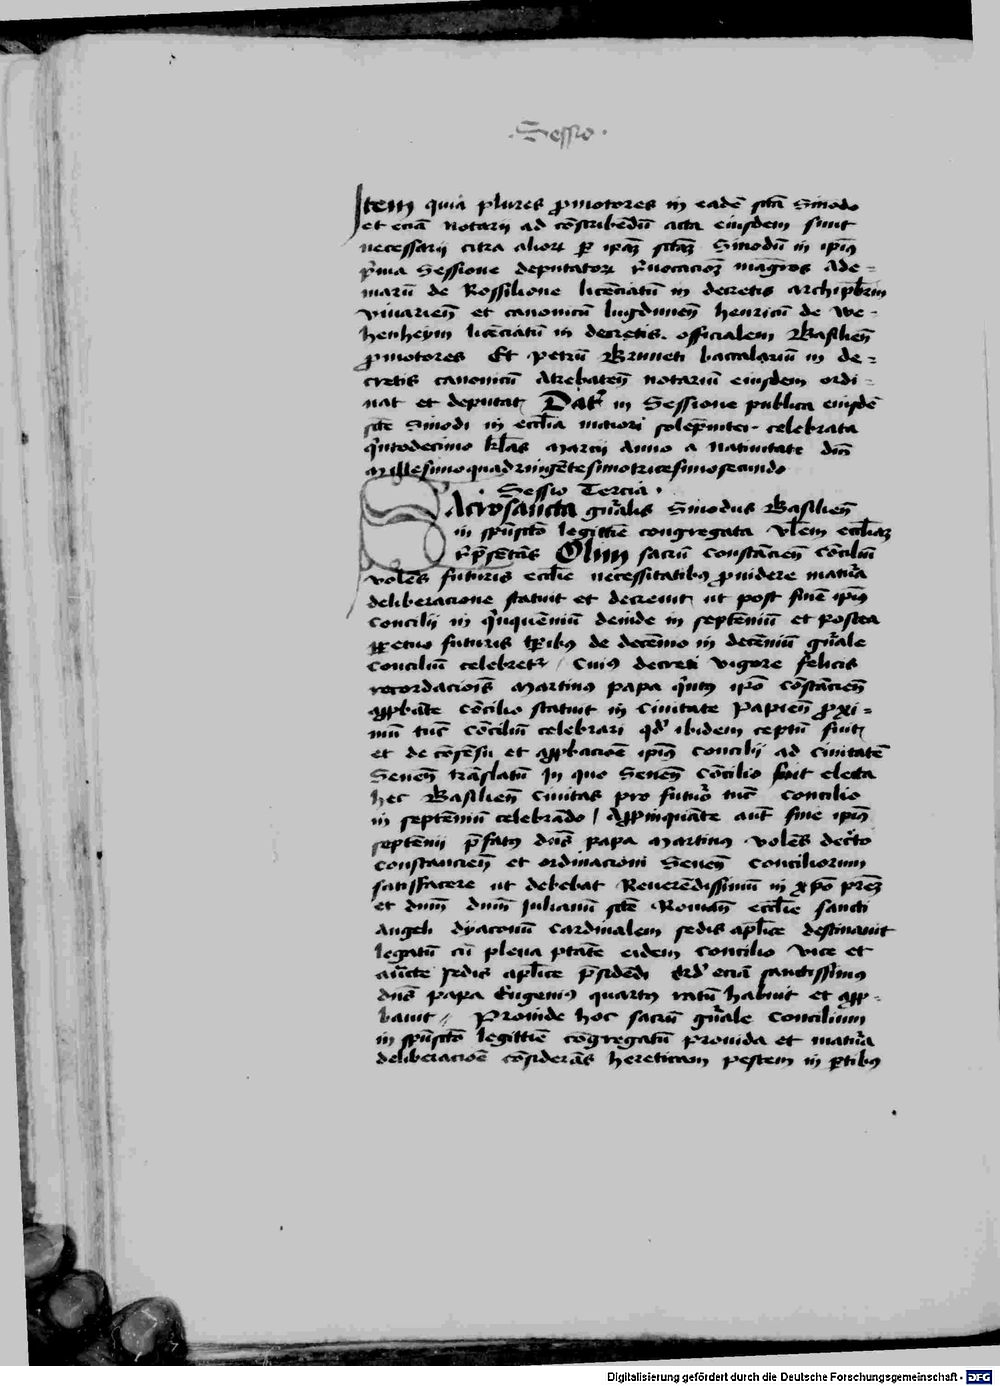 ·Sessio·
Item quia plures ꝓmotores in eadē sctā Sinodo
et eciā notarij ad cōscribēdū acta eiusdem sunt
necessarij citra alioꝝ ꝑ ipāꝫ sctāꝫ Sinodū in ipiꝰ
p̄ma Sessione deputatoꝝ r̄uocacioꝫ magr̄os Ade=
marū de Rossilione licēciatū in decretis archipb̄rm
viuarien̄ et canonicū lugdunen̄ henricū de We-
henheym licēciatū in decretis. officialem Basilien̄
ꝓmotores Et petrū Bruneti baccalariū in de=
cretis canonicū Atrebaten̄ notariū eiusdem ordi=
nat et deputat Dat̄ in Sessione publica eiusdē
scte Sinodi in eccl̄ia maiori solēpniter celebrata
q̄ntodecimo kl̄as Marcij Anno a Natiuitate dn̄i
Millesimoquadringētesimotricesimosecundo
·Sessio Tercia·
Sacrosancta gn̄alis Sinodus Basilien̄
in spūsctō legittīe congregata vl̄em eccl̄iaꝫ
rp̄sētās Olim sacrū Constācien̄ cōciliū
volēs futuris eccl̄ie necessitatibꝰ ꝓuidere matūa
deliberacione statuit et decreuit ut post finē ipiꝰ
concilij in q̄nquēniū deinde in septēniū et postea
ꝑpetuo futuris tꝑibꝰ de decēnio in decēniū gn̄ale
conciliū celebret̄ / Cuiꝰ decreti vigore felicis
recordaciōis Martinꝰ papa q̄ntꝰ ipō Cōstācien̄
aꝓbāte cōcilio statuit in Ciuitate Papien̄ ꝓxi=
mū tūc Cōciliū celebrari qd̄ ibidem ceptū fuit
et de cōsēsu et aꝓbacioē ipiꝰ concilij ad ciuitatē
Senen̄ trāslatū In quo Senen̄ cōcilio fuit electa
hec Basilien̄ Ciuitas pro futuō tūc concilio
in septēniū celebrādo / Aꝓpinquāte aūt fine ipiꝰ
septēnij p̄fatꝰ dn̄s papa Martinꝰ volēs decr̄to
constancien̄ et ordinacioni Senen̄ Conciliorum
satisfacere ut debebat Reuerēdissimū in xp̄o pr̄eꝫ
et dn̄m dn̄m Julianū scte Roman̄ eccl̄ie sancti
Angeli dyaconū Cardinalem sedis apl̄ice destinauit
legatū cū plena ptāte eidem Concilio vice et
auc̄te sedis apl̄ice p̄sidēdi qd̄ eciā sanctissimꝰ
dn̄s papa Eugeniꝰ quartꝰ ratū habuit et aꝓ=
bauit // Prouide hoc sacrū gn̄ale Concilium
in spūsctō legittīe cōgregatū prouida et matūa
deliberacioē cōsiderās hereticam pestem in ꝑtibꝰ
Digitalisierung gefördert durch die Deutsche Forschungsgemeinschaft - DFG